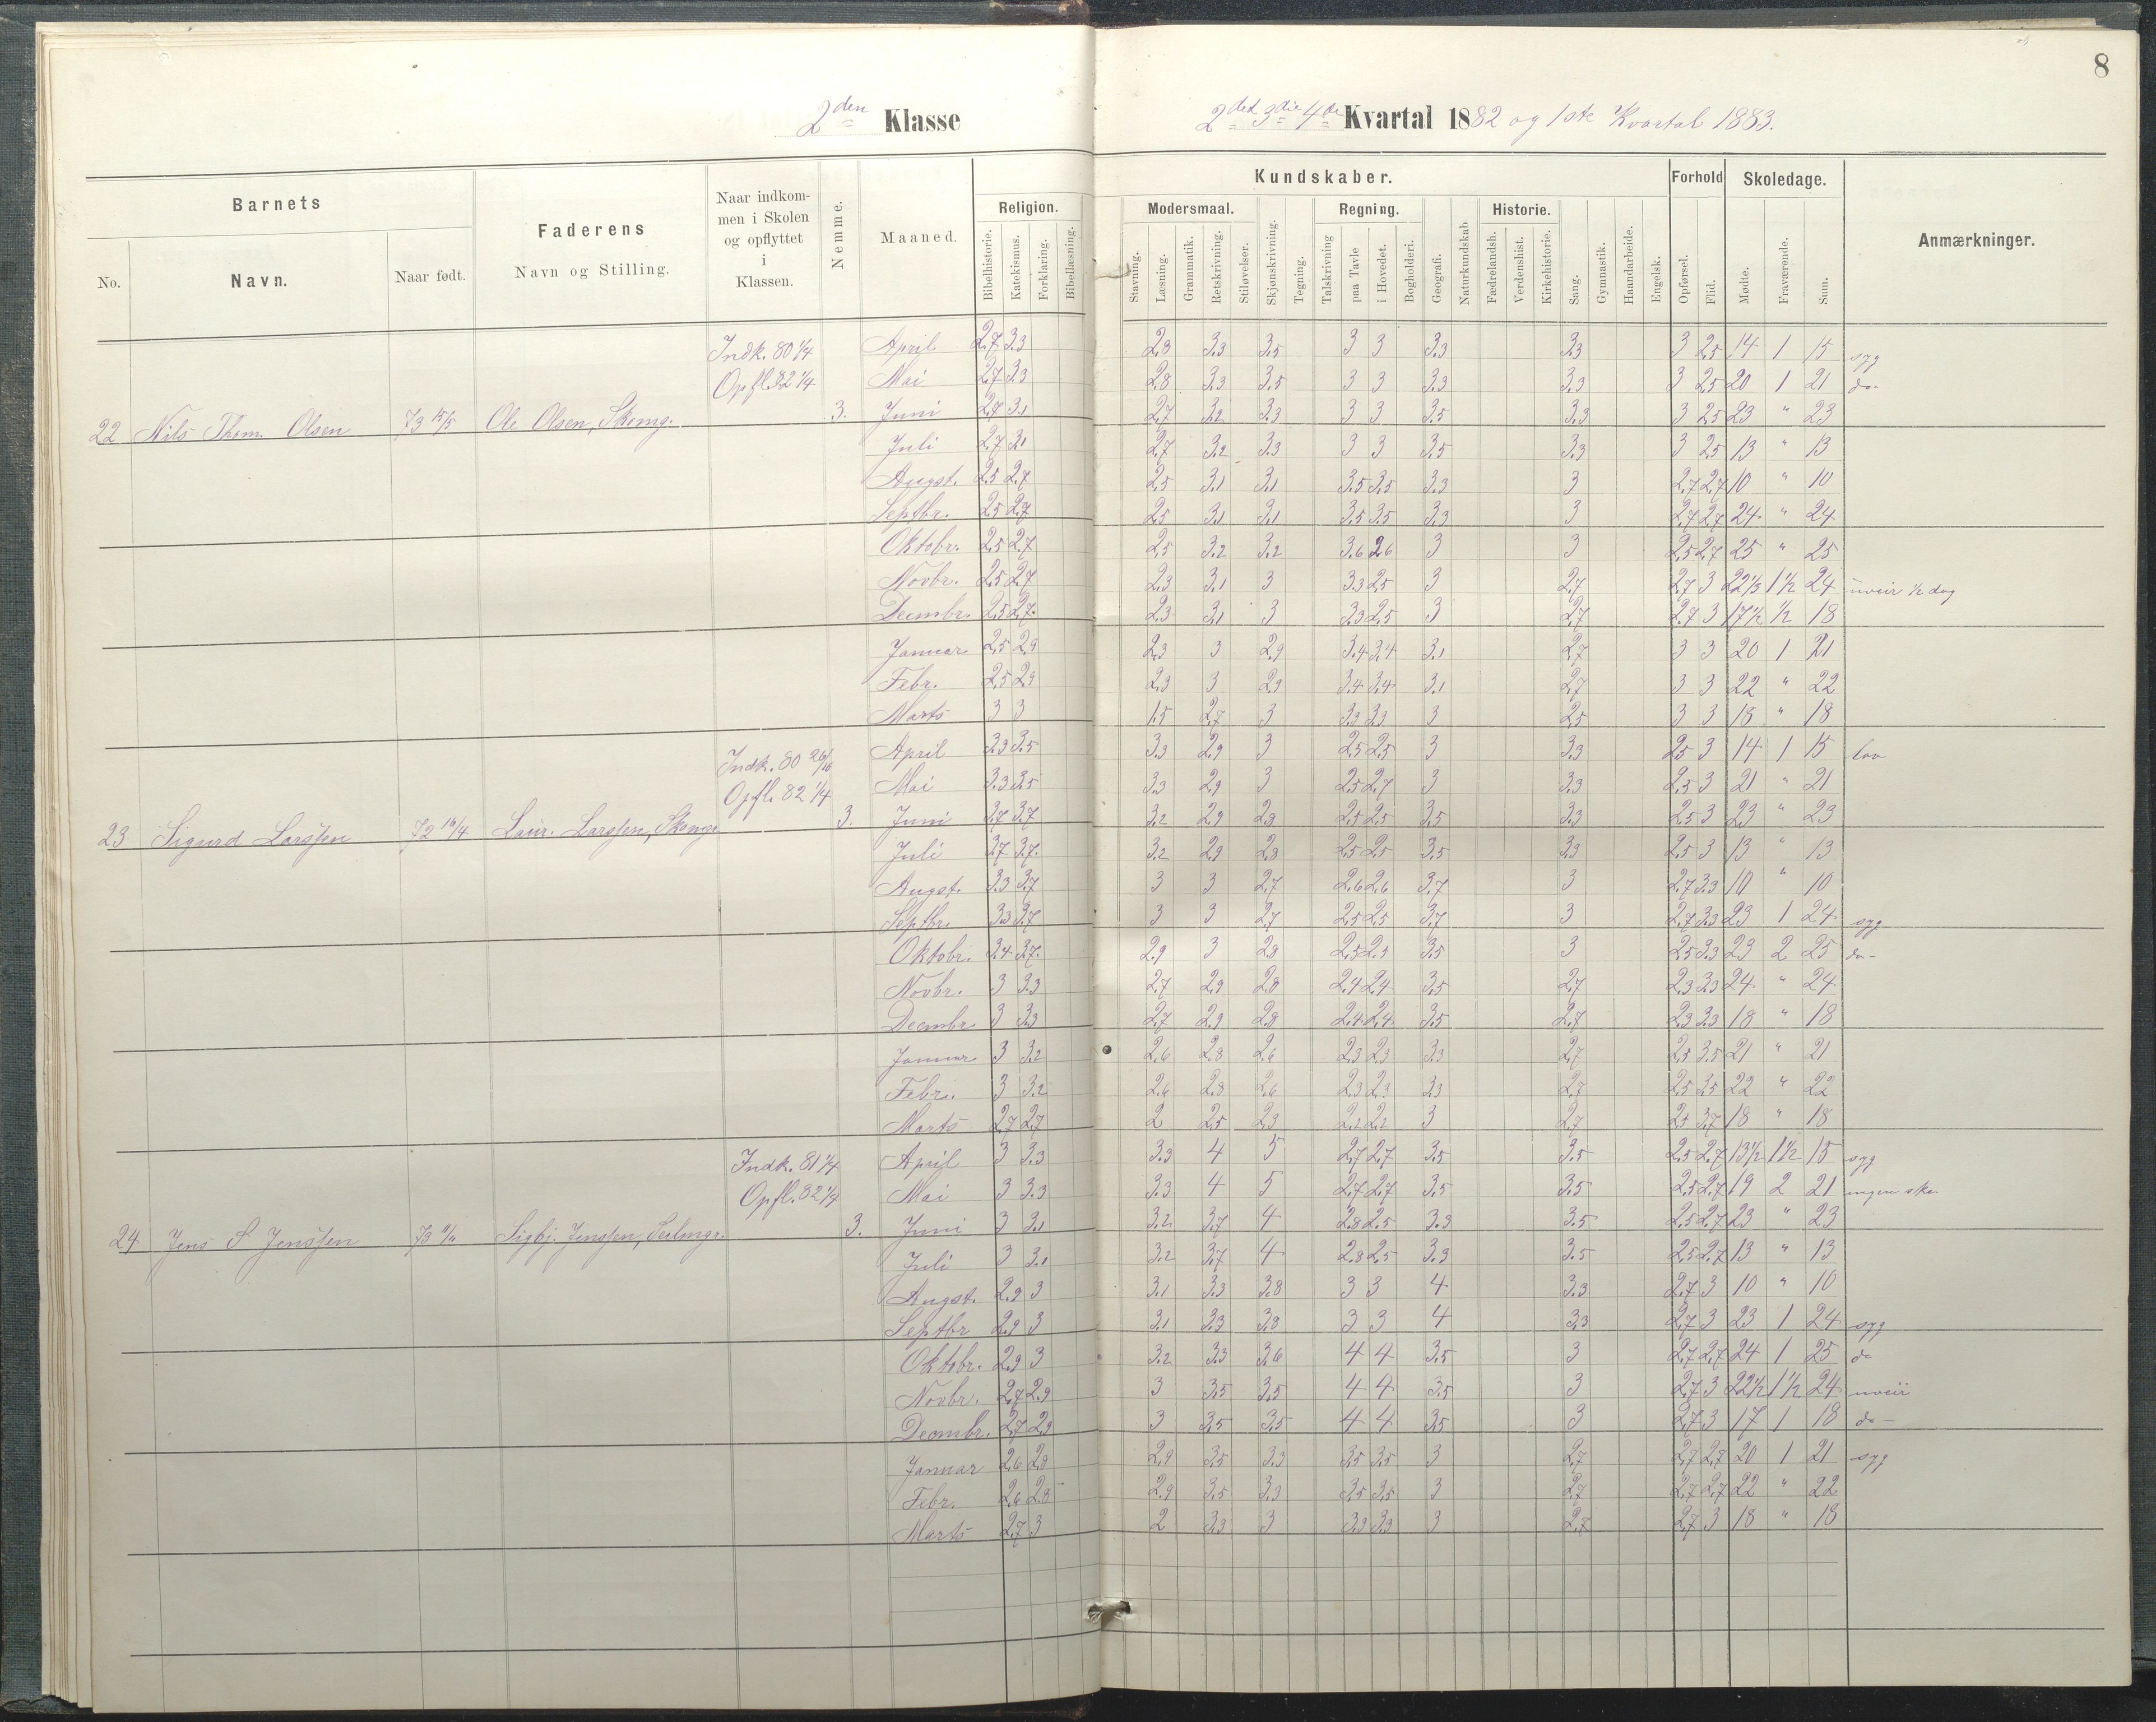 8
2den Klasse
2det 3die 4de Kvartal 1882 og 1ste Kvartal 1883.
Barnets
Faderens
Naar indkommen i Skolen og opflyttet i Klassen.
Nemme.
Maaned.
Kundskaber.
Forhold
Skoledage.
Anmærkninger.
No.
Navn.
Naar født.
Navn og Stilling.
Religion.
Modersmaal.
Regning.
Historie.
Bibelhistorie. Katekismus. Forklaring. Bibellæsning. Stavning. Læsning. Grammatik. Retskrivning. Stiløvelser. Skjønskrivning. Tegning. Talskrivning paa Tavle i Hovedet. Bogholderi. Geografi. Naturkundskab Fædrelandsh. Verdenshist. Kirkehistorie. Sang. Gymnastik. Haandarbeide. Engelsk. Opførsel. Flid. Møde. Fraværende. Sum.
Indk. 80 1/4 April 2,7 3,3 2,8 3,3 3,5 3 3 3,3 3,3 3 2,5 14 1 15 syg
Opfl. 82 1/4 Mai 2,7 3,3 2,8 3,3 3,5 3 3 3,3 3,3 3 2,5 20 1 21 do-
22 Nils Thom. Olsen 73 15/5 Ole Olsen, Skomg. 3. Juni 2,7 3,1 2,7 3,2 3,3 3 3 3,5 3,3 3 2,5 23 " 23
Juli 2,7 3,1 2,7 3,2 3,3 3 3 3,5 3,3 3 2,5 13 " 13
Augst. 2,5 2,7 2,5 3,1 3,1 3,5 3,5 3,3 3 2,7 2,7 10 " 10
Septbr. 2,5 2,7 2,5 3,1 3,1 3,5 3,5 3,3 3 2,7 2,7 24 " 24
Oktobr. 2,5 2,7 2,5 3,2 3,2 3,6 2,6 3 3 2,5 2,7 25 " 25
Novbr. 2,5 2,7 2,3 3,1 3 3,3 2,5 3 2,7 2,7 3 22 1/2 1 1/2 24 uveir 1/2 dag
Decmbr. 2,5 2,7 2,3 3,1 3 3,3 2,5 3 2,7 2,7 3 17 1/2 1/2 18
Januar 2,5 2,9 2,3 3 2,9 3,4 3,4 3,1 2,7 3 3 20 1 21
Febr. 2,5 2,9 2,3 3 2,9 3,4 3,4 3,1 2,7 3 3 22 " 22
Marts 3 3 1,5 2,7 3 3,3 3,3 3 2,5 3 3 18 " 18
Indk. 80 April 3,3 3,5 3,3 2,9 3 2,5 2,5 3 3,3 2,5 3 14 1 15 lov
Opfl. 82 1/4 Mai 3,3 3,5 3,3 2,9 3 2,5 2,7 3 3,3 2,5 3 21 " 21
23 Sigurd Larssen 72 16/4 Laur. Larssen, Skomgr. 3. Juni 3,7 3,7 3,2 2,9 2,8 2,5 2,5 3,5 3,3 2,5 3 23 " 23
Juli 3,7 3,7 3,2 2,9 2,8 2,5 2,5 3,5 3,3 2,5 3 13 " 13
Augst. 3,3 3,7 3 3 2,7 2,6 2,6 3,7 3 2,7 3,3 10 " 10
Septbr. 3,3 3,7 3 3 2,7 2,5 2,5 3,7 3 2,7 3,3 23 1 24 syg
Oktobr. 3,4 3,7 2,9 3 2,8 2,5 2,5 3,5 3 2,5 3,3 23 2 25 do-
Novbr. 3 3,3 2,7 2,9 2,8 2,4 2,4 3,5 2,7 2,3 3,3 24 " 24
Decmbr. 3 3,3 2,7 2,9 2,8 2,4 2,4 3,5 2,7 2,3 3,3 18 " 18
Januar 3 3,2 2,6 2,8 2,6 2,3 2,3 3,3 2,7 2,5 3,5 21 " 21
Febr. 3 3,2 2,6 2,8 2,6 2,3 2,3 3,3 2,7 2,5 3,5 22 " 22
Marts 2,7 2,7 2 2,5 2,3 2,2 2,2 3 2,7 2,5 3,7 18 " 18
Indk. 81 1/4 April 3 3,3 3,3 4 5 2,7 2,7 3,5 3,5 2,5 2,7 13 1/2 1 1/2 15 syg
Opfl. 82 1/4 Mai 3 3,3 3,3 4 5 2,7 2,7 3,5 3,5 2,5 2,7 19 2 21 ingen sko
24 Jens S Jenssen 73 Sigbj. Jenssen, Seilmgr. 3. Juni 3 3,1 3,2 3,7 4 2,8 2,5 3,3 3,5 2,5 2,7 23 " 23
Juli 3 3,1 3,2 3,7 4 2,8 2,5 3,3 3,5 2,5 2,7 13 " 13
Augst. 2,9 3 3,1 3,3 3,8 3 3 4 3,3 2,7 3 10 " 10
Septbr 2,9 3 3,1 3,3 3,8 3 3 4 3,3 2,7 3 23 1 24 syg
Oktobr. 2,9 3 3,2 3,3 3,6 4 4 3,5 3 2,7 2,7 24 1 25 do
Novbr. 2,7 2,9 3 3,5 3,5 4 4 3,5 3 2,7 3 22 1/2 1 1/2 24 uveir
Decmbr. 2,7 2,9 3 3,5 3,5 4 4 3,5 3 2,7 3 17 1 18 do-
Januar 2,6 2,8 2,9 3,5 3,3 3,5 3,5 3 2,7 2,7 2,7 20 1 21 syg
Febr. 2,6 2,8 2,9 3,5 3,3 3,5 3,5 3 2,7 2,7 2,7 22 " 22
Marts 2,7 3 2 3,3 3 3,3 3,3 3 2,7 2,7 3 18 " 18